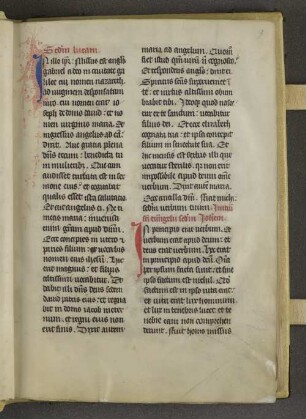 Secūdm lucam
In illo tp̄r. Missus est angls
gabriel a deo in ciuitatē ga
lilee cui nomen nazareth.
ad uirginem desponsatam
uiro. cui nomen erat io
seph de domo dauid. et no
men uirginis maria. Et
ingressus angelus ad eā:
dixit. Aue gratia plena
dn̄s tecum: benedicta tu
in mulieribus. Que cum
audisset turbata est in ser
mone eius. et cogitabat
qualis esset ista salutatio.
Et ait angelus ei. Ne ti
meas maria: inuenisti
enim grām apud dn̄m.
Ecce concipies in utero et
paries filium: et uocabis
nomen eius ih̄m. Hic
erit magnus: et filius
altissimi uocabitur. Et
dabit illi dn̄s deus sedem
dauid patris eius: et regna
bit in domo iacob in eter
num. et regni eius non
erit finis. Dixit autem
maria ad angelum. Quom̄
fiet istud qm̄ uirū nō cognosco.
Et respondens angls: dixit ei.
Spiritus sc̄us superueniet ī
te: et uirtus altissimi obum
brabit tibi. Ideoqz quod nasce
tur ex te sanctum: uocabitur
filius dei. Et ecce elizabeth
cognata tua: et ipsa concepit
filium in senectute sua. Et
hic mensis est sextus illi que
uocatur sterilis: quia non erit
impossibile apud deum omne
uerbum. Dixit autē maria.
Ecce ancilla dn̄i: fiat michi
secūdm uerbum tuum. Iniciū
sc̄i euuangelii secūdm Iohem.
In principio erat uerbum. et
uerbum erat apud deum: et
deus erat uerbum. Hoc erat
in principio apud deū. Om̄ia
per ipsum facta sunt: et sine
ipso factum est nichil. Quod
factum est in ipso uita erat:
et uita erat lux hominum.
et lux in tenebris lucet: et te
nebre eam non comprehen
derunt. Fuit homo missus